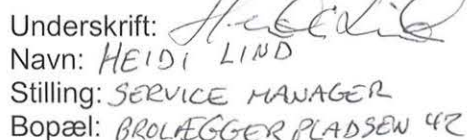 Underskrift: Heidi Lind
Navn: HEIDI LIND
Stilling: SERVICE MANAGER
Bopæl: BROLÆGGER PLADSEN 42